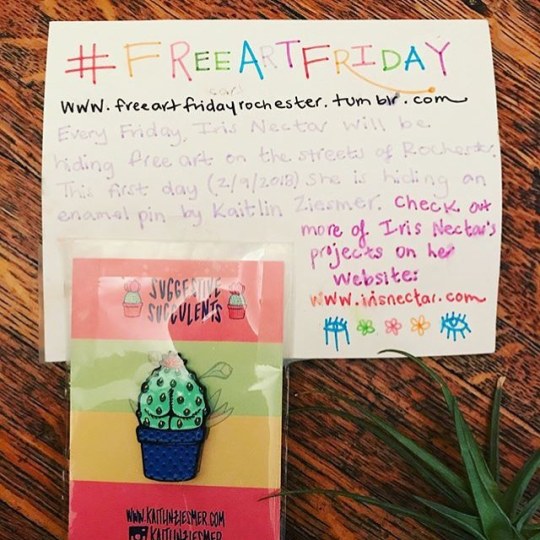 #FREEARTFRIDAY
www.freeartfridayrochester.tumblr.com
Every Friday, Iris Nectar will be
hiding free art on the streets of Rochester.
This first day (2/9/2018) she is hiding an
enamel pin by Kaitlin Ziesmer. Check out
more of Iris Nectar's
projects on her
website:
www.irisnectar.com
SUGGESTIVE
SUCCULENTS
WWW.KAITLINZIESMER.COM
KAITLINZIESMER